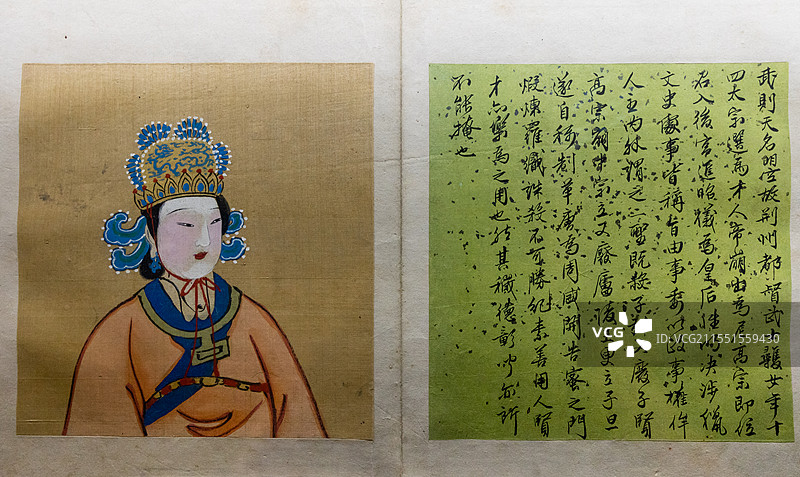 武則天名曌故荊州都督武士彠女年十
四太宗選為才人帝崩出為尼高宗即位
召入後宮進昭儀為皇后性明決涉獵
文史處事皆稱旨由事委以政事權侔
人主内外謂之二聖既殺子 廢子賢
高宗崩中宗立又廢廬陵更立子旦
遂自稱制革唐為周盛開告密之門
煅煉羅織誅殺不可勝紀素善用人賢
才亦樂為之用也然其穢德彰聞亦所
不能掩也
VCG
VCG211551559430